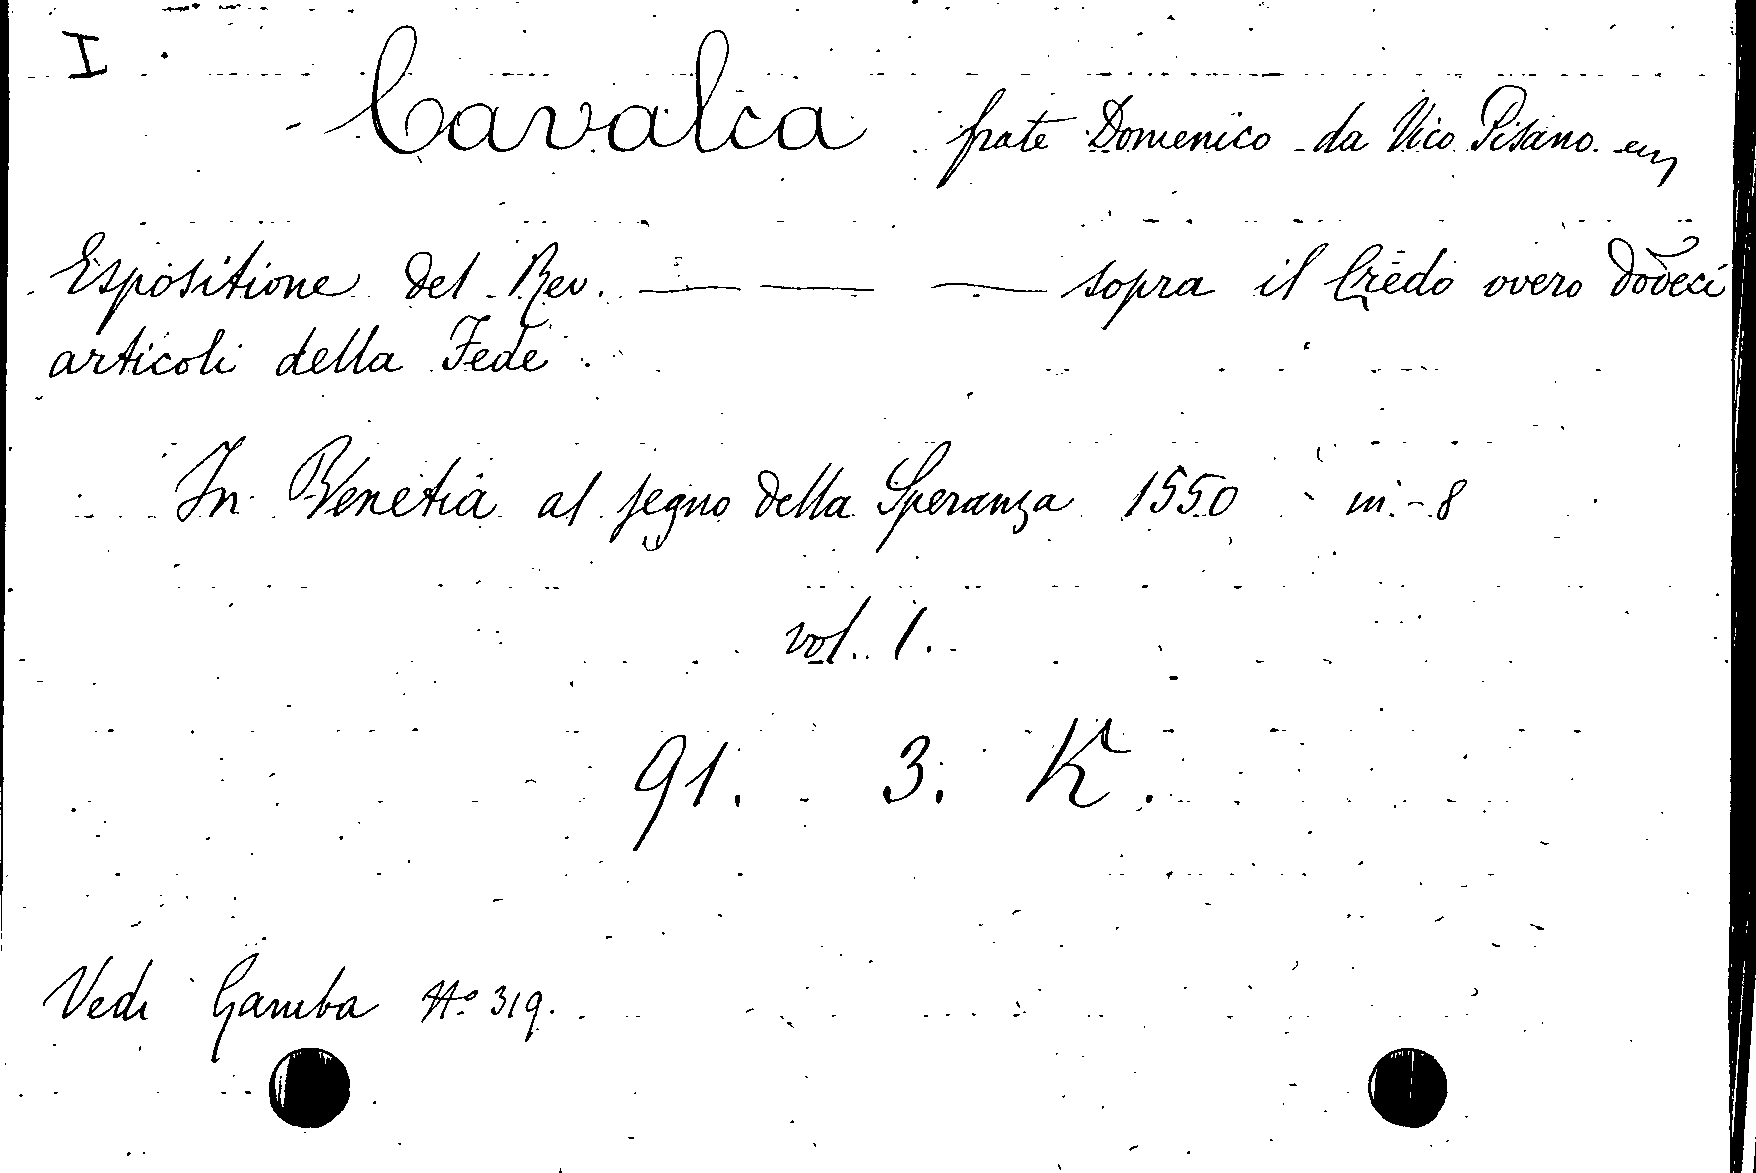 I
Cavalca frate Domenico da Vico Pisano
Espositione del Rev. — — — sopra il Credo overo dodeci
articoli della Fede.
In Venetia al segno della Speranza 1550 in-8
vol. 1.
91. 3. K.
Vedi Gamba No. 319.